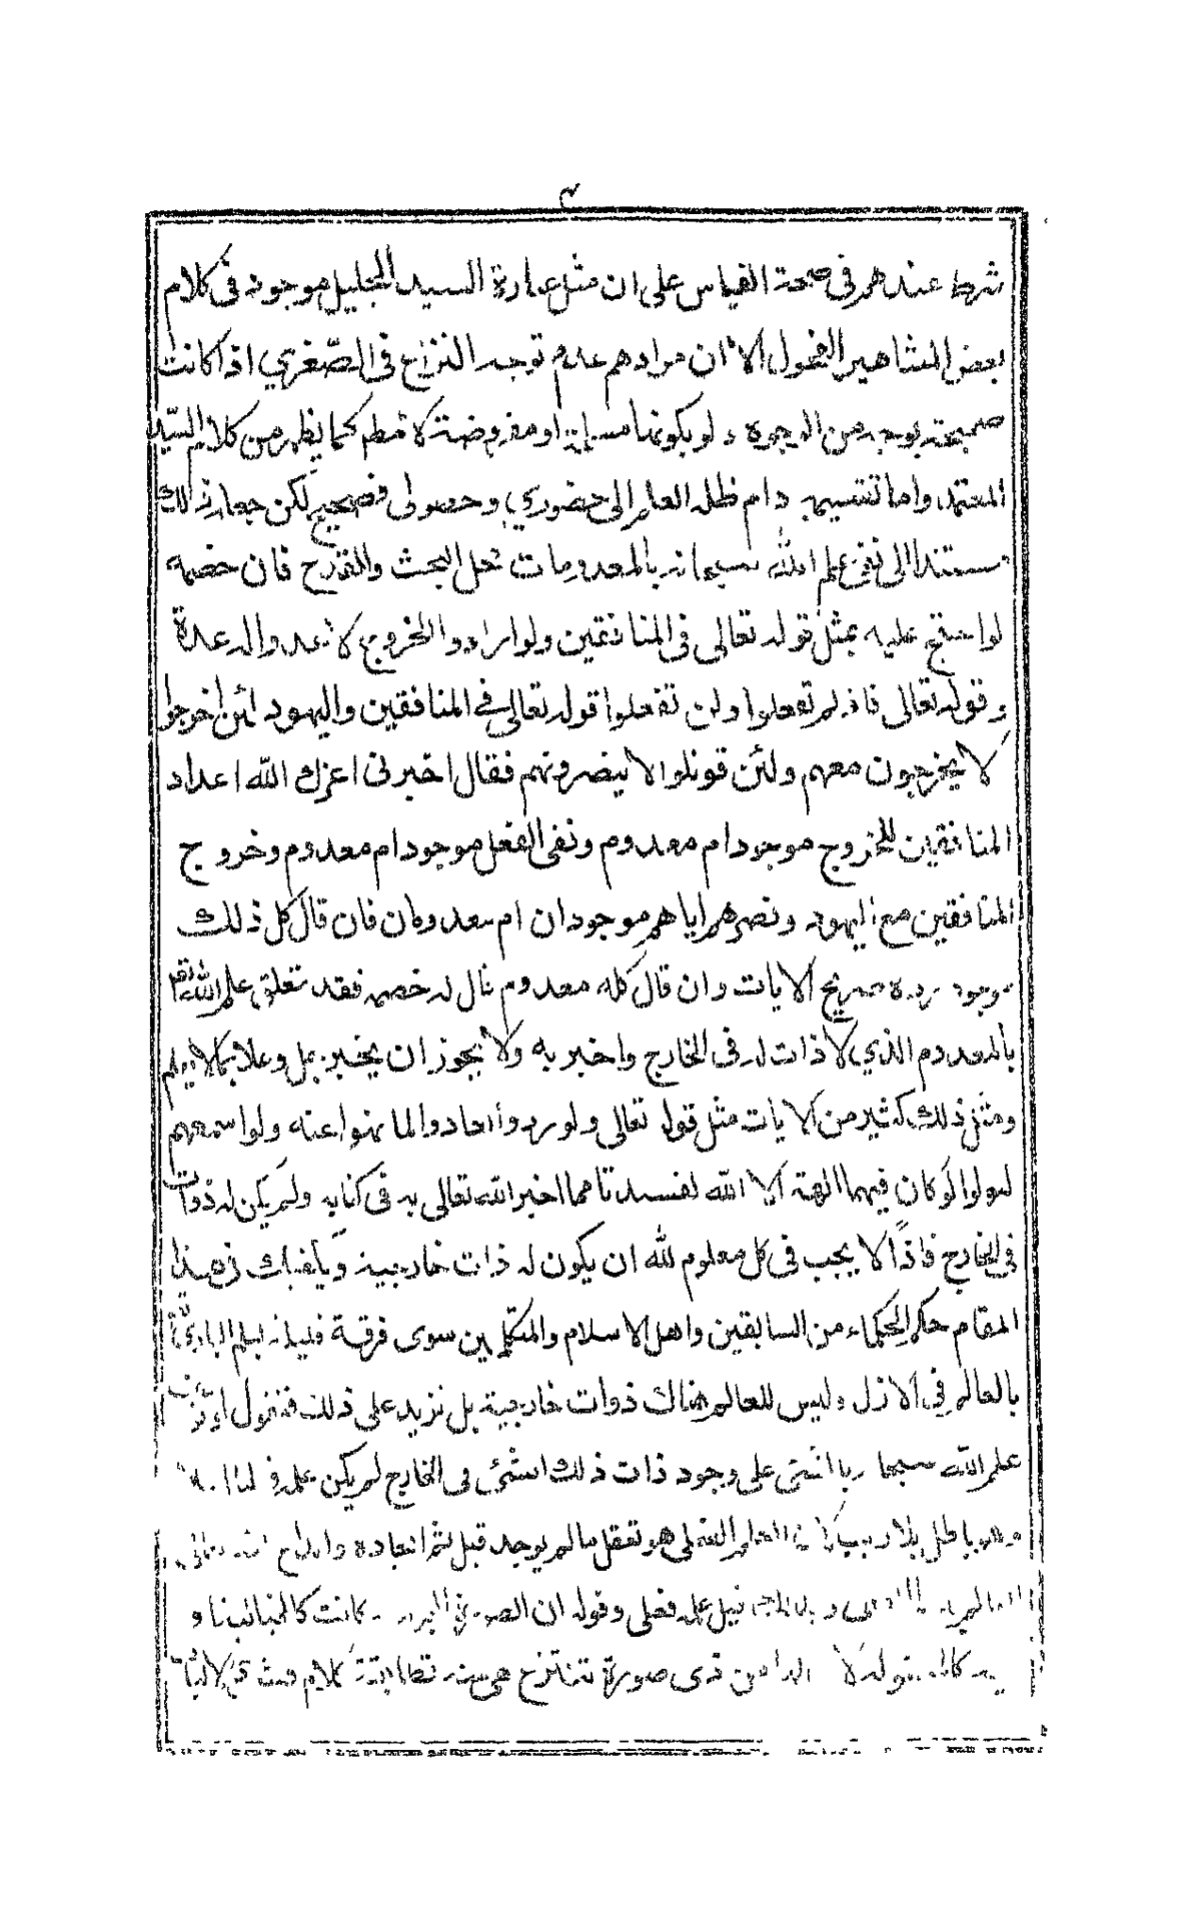 ٣
شرط عندهم فى صحة القياس على ان مثل عبارة السيد الجليل موجود فى كلام
بعض المشاهير الفحول الا ان مرادهم عدم توجه النزاع فى الصغرى اذا كانت
صحيحة بوجه من الوجوه ولو بكونها مسلمة او مفروضة لا مطلقا كما يظهر من كلام السيد
المعتمد واما تقسيمه دام ظله العلم الى حضوري وحصولى فصحيح لكن جعله ذلك
مستندا الى نفى علم الله سبحانه بالمعدومات محل البحث والقدح فان خصمه
لو احتج عليه بمثل قوله تعالى فى المنافقين ولو ارادوا الخروج لاعدوا له عدة
وقوله تعالى فان لم تفعلوا ولن تفعلوا قوله تعالى في المنافقين واليهود لئن اخرجوا
لا يخرجون معهم ولئن قوتلوا لا ينصرونهم فقال اخبرنى اعزك الله اعداد
المنافقين للخروج موجود ام معدوم ونفى الفعل موجود ام معدوم وخروج
المنافقين مع اليهود ونصرهم اياهم موجودان ام معدومان فان قال كل ذلك
موجود رده صريح الايات وان قال كله معدوم قال له خصمه فقد تعلق علم الله تعالى
بالمعدوم الذي لا ذات له فى الخارج واخبر به ولا يجوز ان يخبر جل وعلا بما لا يعلم
ومثل ذلك كثير من الايات مثل قوله تعالى ولو ردوا لعادوا لما نهوا عنه ولو اسمعهم
لتولوا لو كان فيهما الهة الا الله لفسدتا مما اخبر الله تعالى به فى كتابه ولم يكن له ذوات
فى الخارج فاذًا لا يجب فى كل معلوم لله ان يكون له ذات خارجية ويكفيك فى هذا
المقام حكم الحكماء من السابقين واهل الاسلام والمتكلمين سوى فرقة بعلم البارى
بالعالم في الازل وليس للعالم هناك ذوات خارجية بل نزيد على ذلك فنقول لو توقف
علم الله سبحانه بالشئ على وجود ذات ذلك الشئ فى الخارج لم يكن علمه
وهو باطل بلا ريب لان العلم الفعلى هو تعقل ما لم يوجد قبل ثم ايجاده
علمه فعلى وقوله ان الصور كانت كالجبائبنا و
صورة تنتزع هى منه كلام